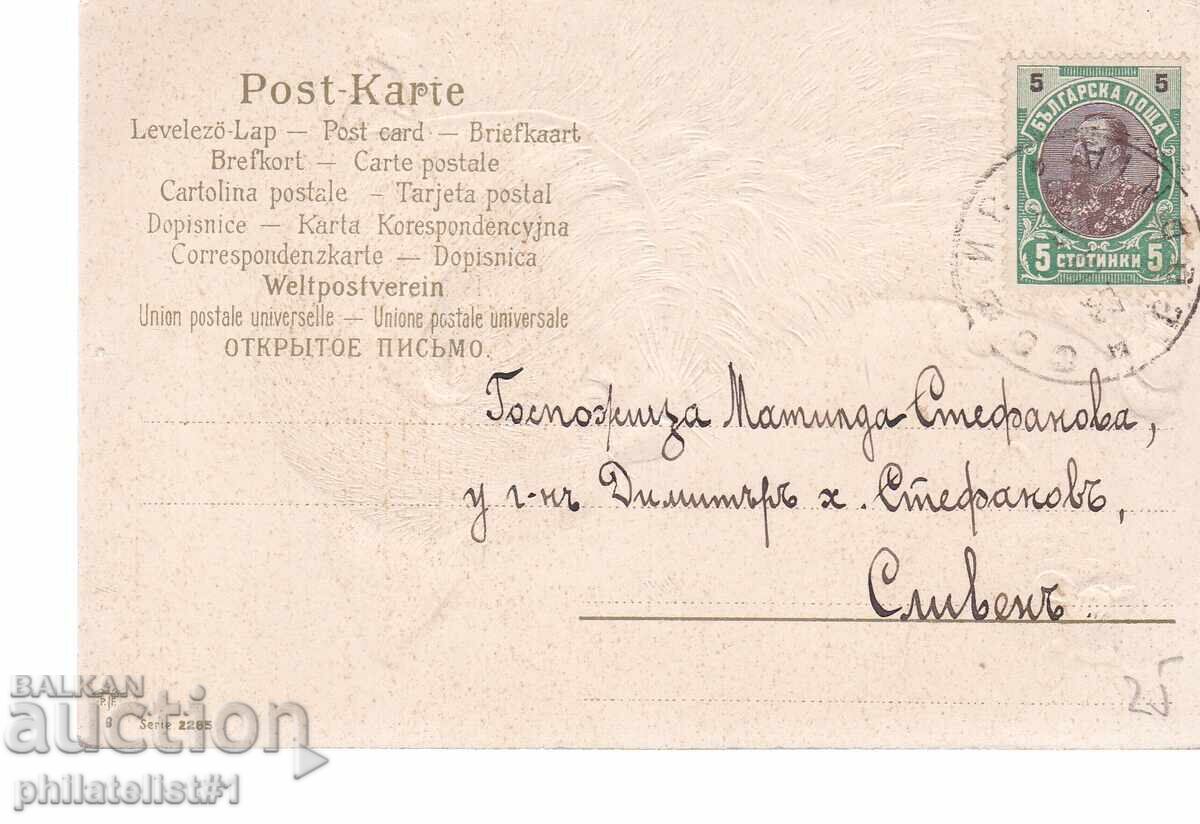 Post-Karte
Levelező-Lap — Post card — Briefkaart
Brefkort — Carte postale
Cartolina postale — Tarjeta postal
Dopisnice — Karta Korespondencyjna
Correspondenzkarte — Dopisnica
Weltpostverein
Union postale universelle — Unione postale universale
ОТКРЫТОЕ ПИСЬМО.
5 5
БЪЛГАРСКА ПОЩА
5 СТОТИНКИ 5
Госпожица Матилда Стефанова,
у г-нъ Димитъръ х. Стефановъ,
Сливенъ
25
Serie 2285
BALKAN
auction
philatelist#1